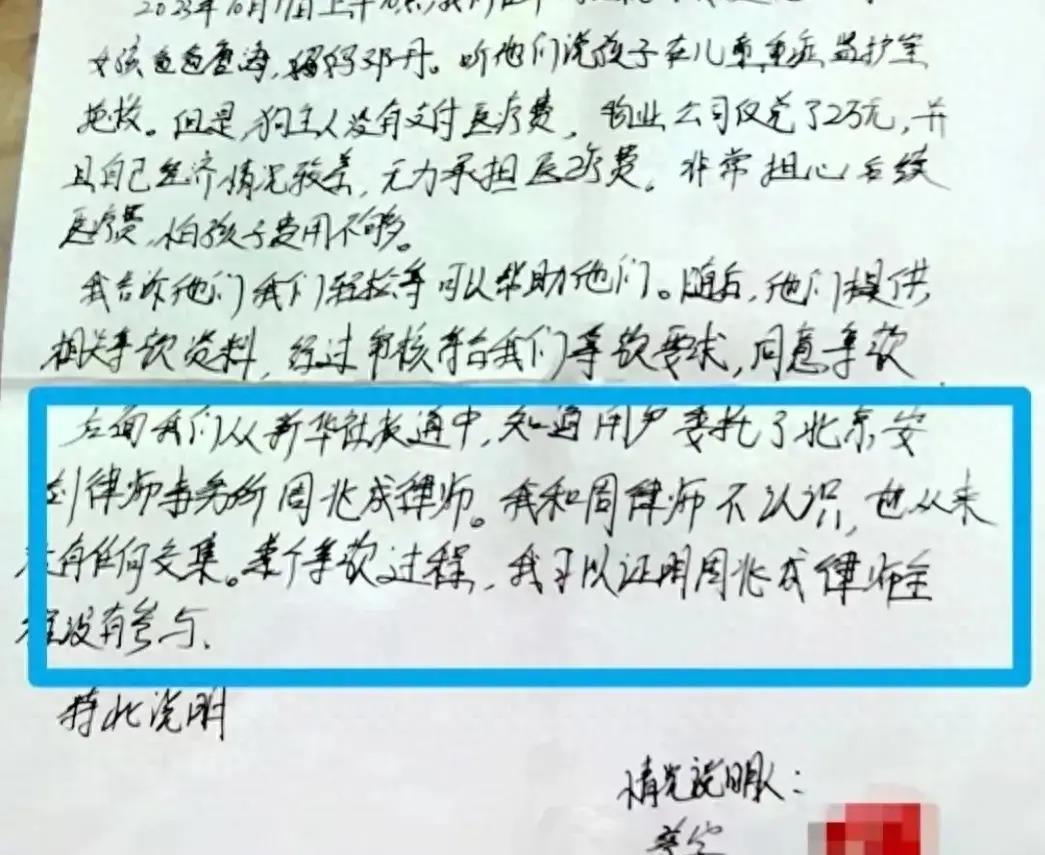 2023年10月17日上午10点,我们在
女孩爸爸唐涛,妈妈邓丹。听他们说孩子在儿童重症监护室
抢救。但是,狗主人没有支付医疗费,物业公司仅兑了2万元,并
且自己经济情况较差,无力承担医疗费。非常担心后续
医疗费,怕孩子费用不够。
我告诉他们我们轻松筹可以帮助他们。随后,他们提供
相关筹款资料,经过审核符合我们筹款要求,同意筹款
后面我们从新华社报道中,知道用户委托了北京安
剑律师事务所周兆成律师。我和周律师不认识,也从来
没有任何交集。整个筹款过程,我可以证明周兆成律师全
程没有参与.
特此说明
情况说明人: